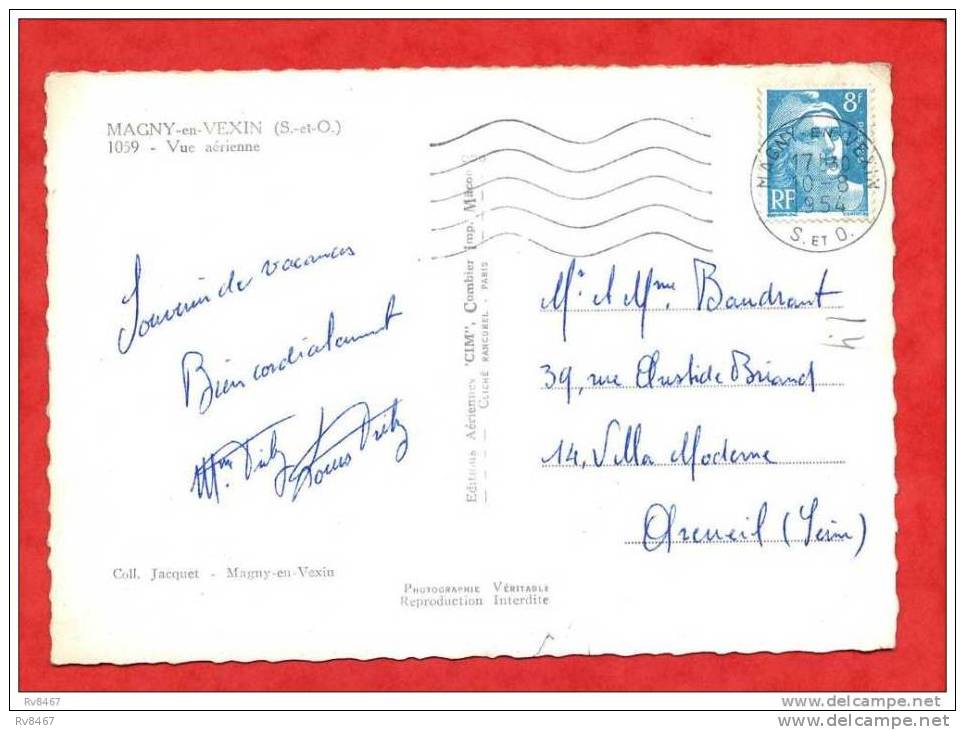 MAGNY-en-VEXIN (S.-et-O.)
1059 - Vue aérienne
8f
RF
MAGNY-EN-VEXIN
17H30
10-8
1954
S. ET O.
Souvenir des vacances
Bien cordialement
Mme
Louis
Editions Aériennes "CIM", Combier Imp. Macon
CLICHÉ RANCUREL - PARIS
Mr et Mme Baudrant
39, rue Aristide Briand
14, Villa Moderne
Arcueil (Seine)
Coll. Jacquet - Magny-en-Vexin
PHOTOGRAPHIE VÉRITABLE
Reproduction Interdite
Rv8467
delcampe.net
Rv8467
delcampe.net